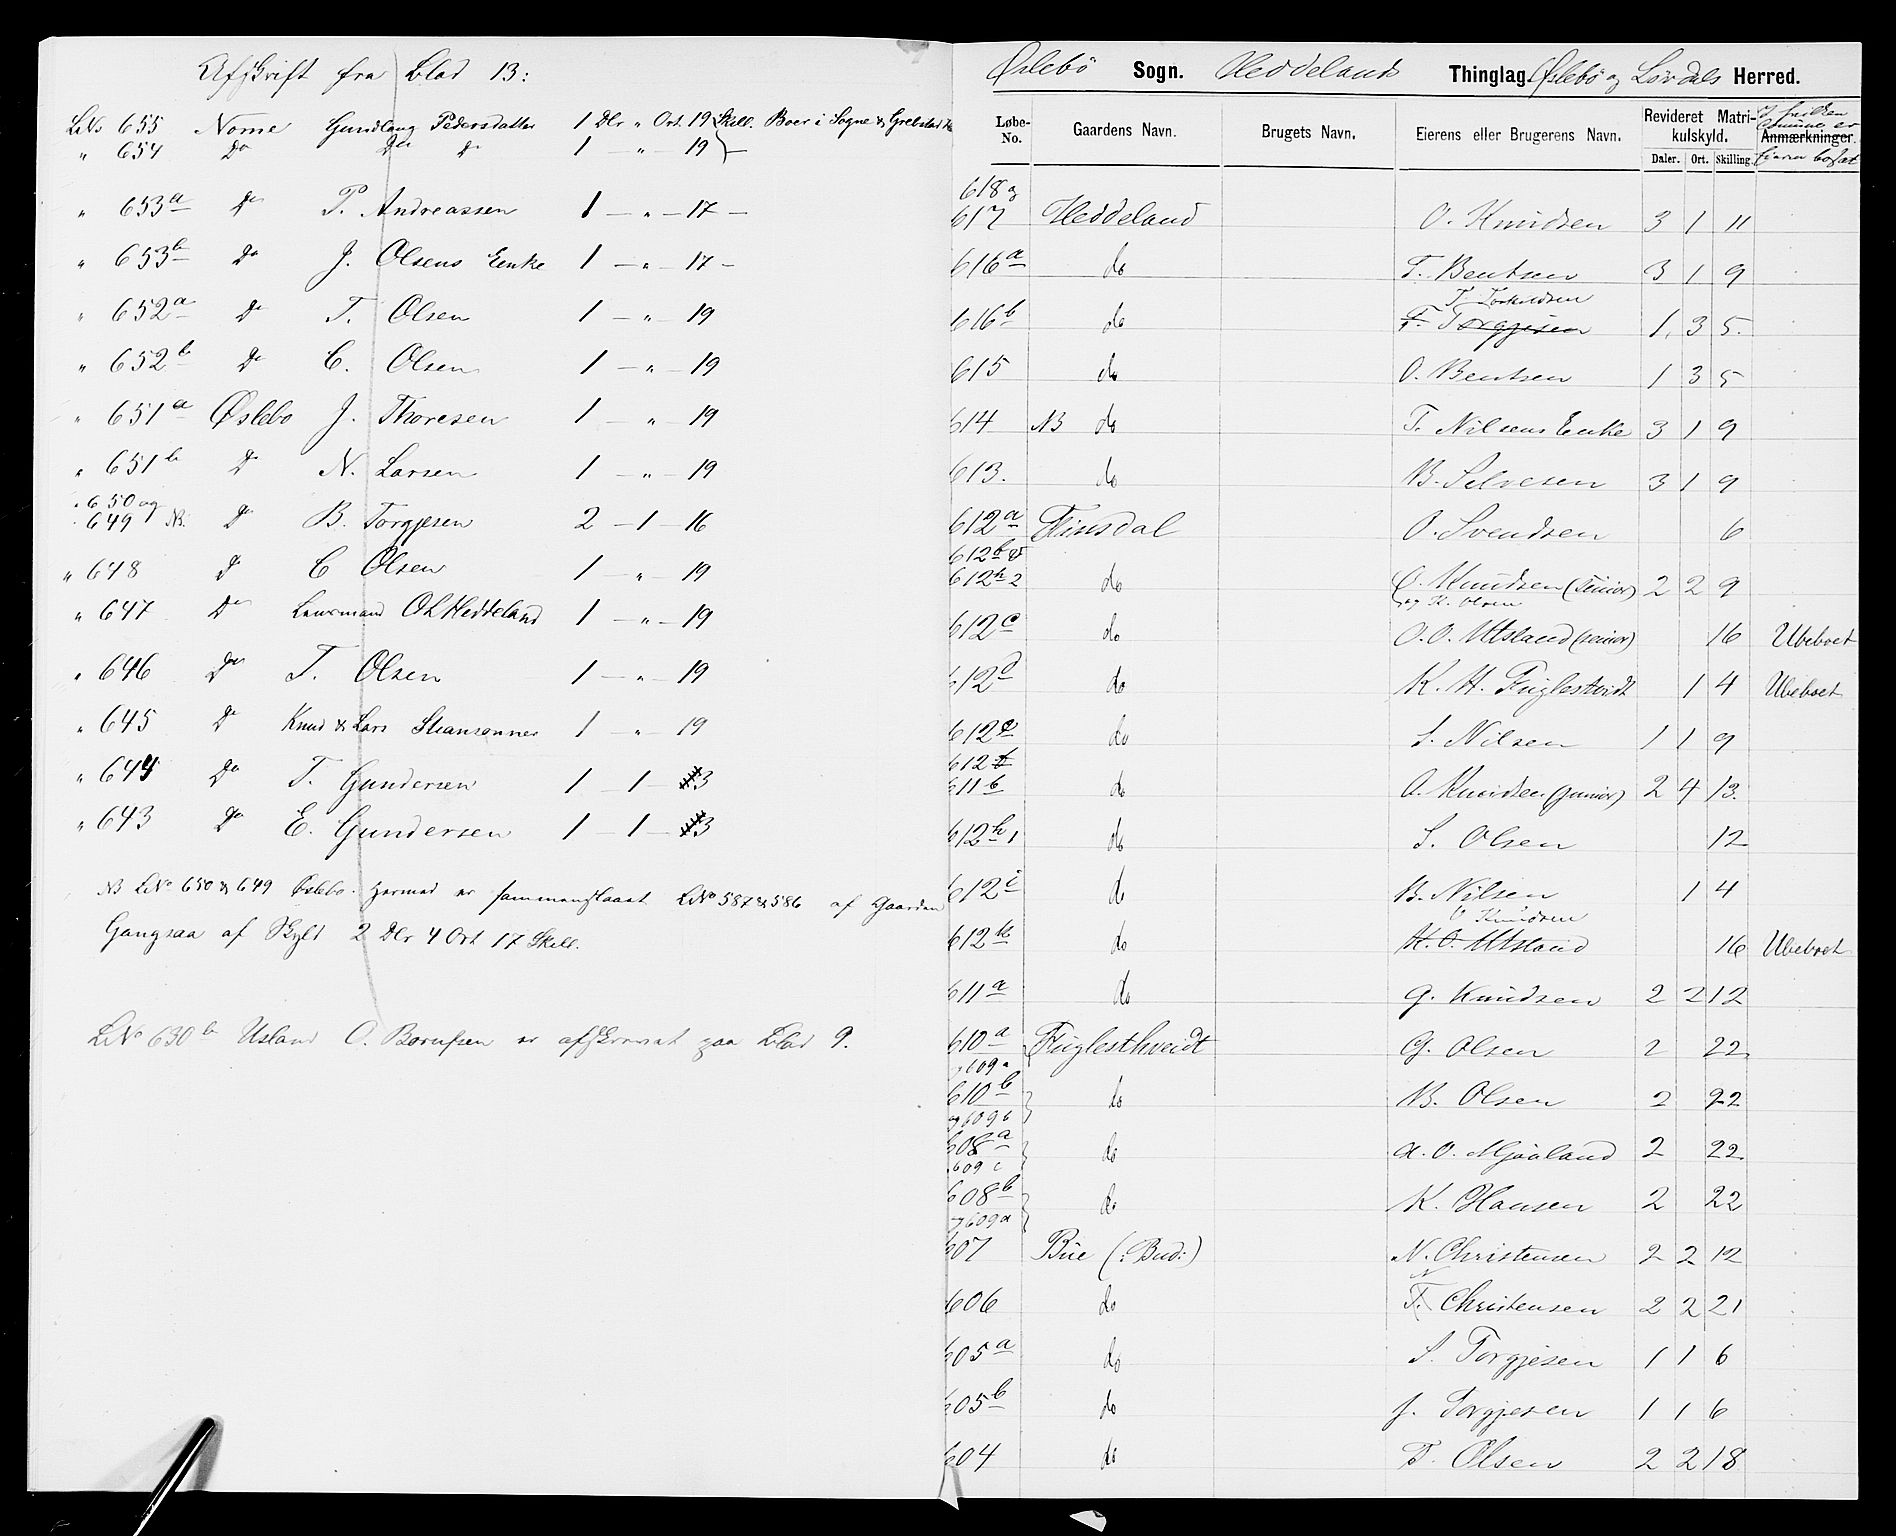 Afskrift fra Blad 13:
LNo 655 Nome Gundlaug Pedersdatter 1 Dlr " Ort. 19 Skill. Boer i Sogne & Grebstad
" 654 Do Do Do 1 — " — 19 —
" 653a Do P. Andreassen 1 — " — 17 —
" 653b Do J. Olsens Enke 1 — " — 17 —
" 652a Do T. Olsen 1 — " — 19
" 652b Do C. Olsen 1 — " — 19
" 651a Øslebo J. Thoresen 1 — " — 19
" 651b Do N. Larsen 1 — " — 19
" 650 og
" 649 NB. Do B. Torgjesen 2 — 1 — 16
" 648 Do C Olsen 1 — " — 19
" 647 Do Lensmand O L Heddeland 1 — " — 19
" 646 Do T. Olsen 1 — " — 19
" 645 Do Knud & Lars Stiansønner 1 " — 19
" 644 Do T. Gundersen 1 — 1 — 3
" 643 Do E. Gundersen 1 — 1 — 3
NB LNo 650 & 649 Øslebo. hermed er sammenslaaet LNo 587 & 586 af Gaarden
Gangsaa af Skyld 2 Dlr 4 Ort 17 Skill.
LNo 630b Usland O. Berntsen er afskrevet paa Blad 9.
Øslebö Sogn. Heddelands Thinglag Øslebö og Lövdals Herred.
Løbe-No. Gaardens Navn. Brugets Navn. Eierens eller Brugerens Navn. Revideret Matrikulskyld. Anmærkninger.
Daler. Ort. Skilling.
618 og
617 Heddeland O. Knudsen 3 1 11
616a do T. Bentsen 3 1 9
T. Torkildsen
616b do T. Torgjesen 1. 3 5.
615 do O. Bentsen 1 3 5
614 NB do T. Nilsens Enke 3 1 9
613. do B. Salvesen 3 1 9
612a Finsdal O. Svendsen 6
612b &
612h 2 do O. Knudsen (senior) 2 2 9
og K. Olsen
612c do O. O. Utsland (senior) 16 Ubeboet
612d do K. H. Fuglestvedt 1 4 Ubeboet
612e do S. Nilsen 1 1 9
612f
611b do O. Knudsen (junior) 2 4 13.
612h 1 do S. Olsen 12
612i do B. Nilsen 1 4
O Knudsen
612k do H. O. Utsland 16 Ubeboet
611a do G. Knudsen 2 2 12
610a Fuglesthveidt G. Olsen 2 22
og 609a
610b do B. Olsen 2 22
og 609b
608a do A. O. Mjaaland 2 22
609c
608b do K. Hansen 2 22
og 609d
607 Bue (: Bud:) N. Christensen 2 2 12
N
606 do T. Christensen 2 2 21
605a do S. Torgjesen 1 1 6
605b do J. Torgjesen 1 1 6
604 do T. Olsen 2 2 18